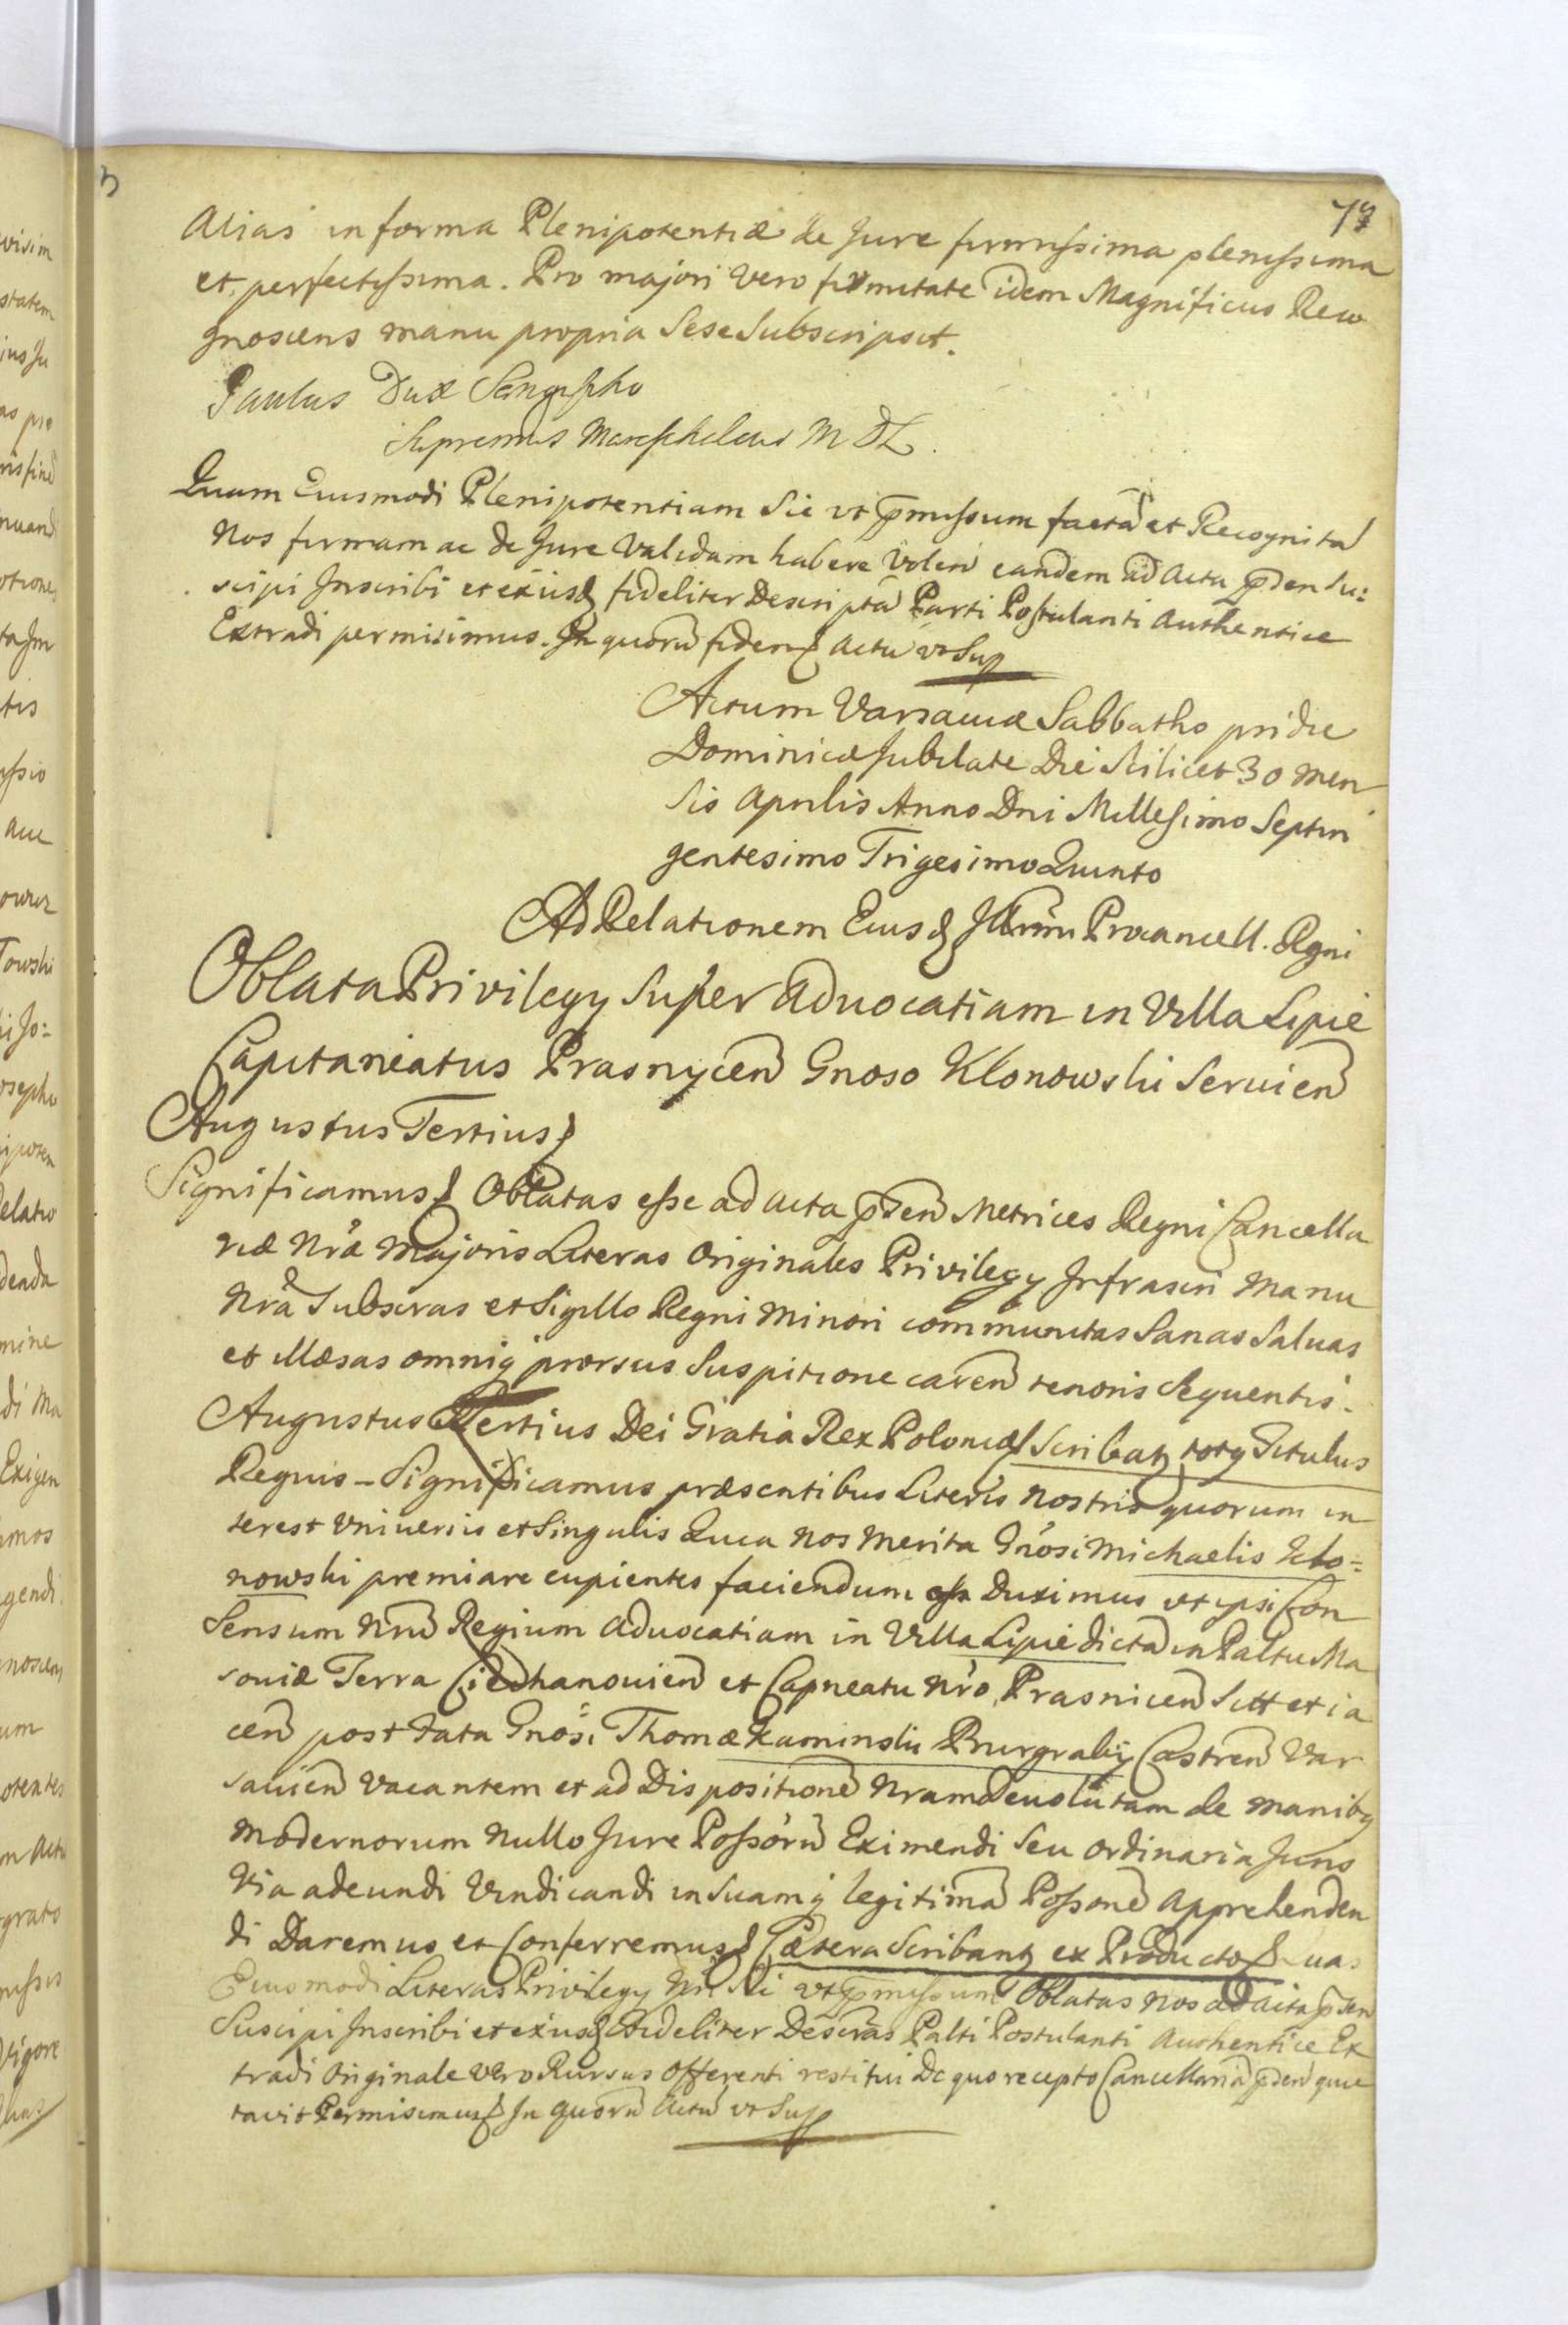 77
Alias in forma Plenipotentiæ de Jure firmissima plenissima
et perfectissima. Pro majori vero firmitate idem Magnificus Reco
gnoscens manu propria Sese Subscripsit.
Paulus Dux Sangushko
Supremus Mareschalcus M D L.
Quam Eiusmodi Plenipotentiam Sic vt pmissum factã et Recognitã
Nos firmam ac de Jure Validam habere Volen eandem ad Acta pden Su:
scipi Inscribi et exiusq fideliter Descriptã Parti Postulanti Authentice
Extradi permisimus. In quorũ fidem Actũ vt Sup
Actum Varsaviæ Sabbatho pridie
Dominicæ Jubilate Die Scilicet 30 Men
sis Aprilis Anno Dni Millesimo Septin
gentesimo Trigesimo Quinto
Ad Relationem Eiusd Illrmi Procancell. Rgni
Oblata Privilegy Super Advocatiam in Villa Lipie
Capitaneatus Prasnycen Gnoso Klonowski Servien
Augustus Tertius
Significamus Oblatas esse ad Acta pden Metrices Regni Cancella
riæ Nrã Majoris Literas Originales Privilegy Infrascri Manu
Nrã Subscras et Sigillo Regni Minori communitas Sanas Salvas
et illæsas omniq prorsus Suspitione caren tenoris Sequentis.
Augustus Tertius Dei Gratia Rex Poloniæ Scribatz toty Titulus
Regius - Significamus præsentibus Literis Nostris quorum in
terest Vniversis et Singulis Quia nos Merita Gnosi Michaelis Klo=
nowski premiare cupientes faciendum esse Duximus vt ipsi Con
Sensum Nrũ Regium Advocatiam in Villa Lipie dictã in Paltu Ma
soviæ Terra Ciechanovien et Capneatu Nro Prasnicen Sitt et ia
cen post fata Gnosi Thomæ Kaminski Burgrabij Castren Var
savien Vacantem et ad Dispositione Nram Devolutam de Maniby
Modernorum Nullo Jure Possorũ Eximendi Seu Ordinaria Juris
Via adeundi Vindicandi in Suamq legitimã Possone Apprehenden
di Daremus et Conferremus Cætera Scribantz ex Producto Quas
Eiusmodi Literas Privilegy Nri Sic vt pmissum Oblatas Nos ad Acta pden
Suscipi Inscribi et exiusq fideliter Descras Palti Postulanti Authentice Ex
tradi Originale Vero Rursus Offerenti restitui De quo recepto Cancellariã pden quie
tavit Permisimus In quorũ Actũ vt Sup